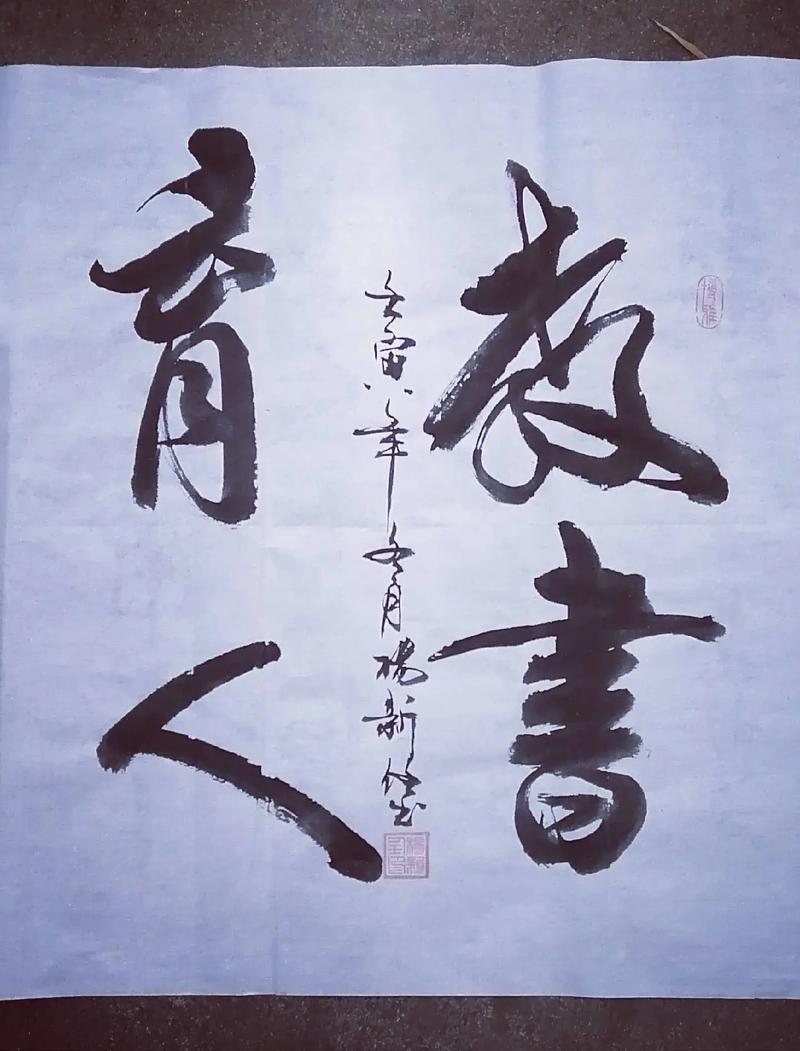 教書
育人
壬寅八年冬月楊新